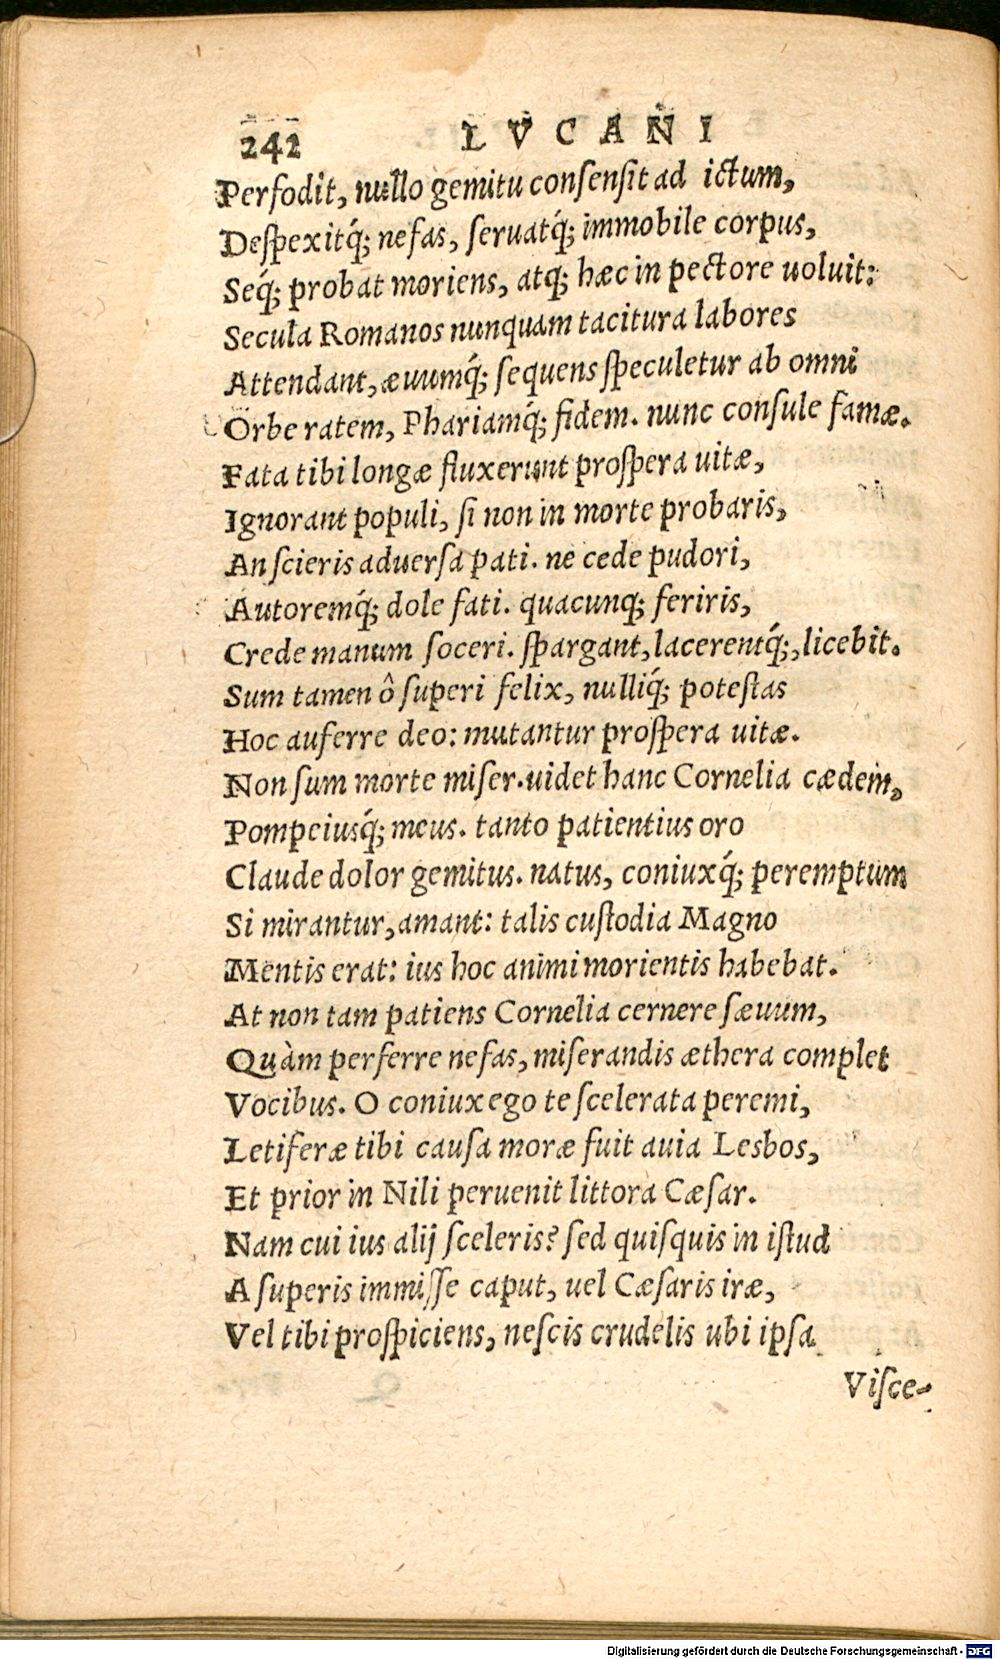 242 LVCANI
Perfodit, nullo gemitu consensit ad ictum,
Despexitq́; nefas, seruatq́; immobile corpus,
Seq́; probat moriens, atq; hæc in pectore uoluit:
Secula Romanos nunquam tacitura labores
Attendant, æuumq́; sequens speculetur ab omni
Orbe ratem, Phariamq́; fidem. nunc consule famæ.
Fata tibi longæ fluxerunt prospera uitæ,
Ignorant populi, si non in morte probaris,
An scieris aduersa pati. ne cede pudori,
Autoremq́; dole fati. quacunq; feriris,
Crede manum soceri. spargant, lacerentq́;, licebit.
Sum tamen ô superi felix, nulliq́; potestas
Hoc auferre deo: mutantur prospera uitæ.
Non sum morte miser. uidet hanc Cornelia cædem,
Pompeiusq́; meus. tanto patientius oro
Claude dolor gemitus. natus, coniuxq́; peremptum
Si mirantur, amant: talis custodia Magno
Mentis erat: ius hoc animi morientis habebat.
At non tam patiens Cornelia cernere sæuum,
Quàm perferre nefas, miserandis æthera complet
Vocibus. O coniux ego te scelerata peremi,
Letiferæ tibi causa moræ fuit auia Lesbos,
Et prior in Nili peruenit littora Cæsar.
Nam cui ius alij sceleris? sed quisquis in istud
A superis immisse caput, uel Cæsaris iræ,
Vel tibi prospiciens, nescis crudelis ubi ipsa
Visce-
Digitalisierung gefördert durch die Deutsche Forschungsgemeinschaft - DFG